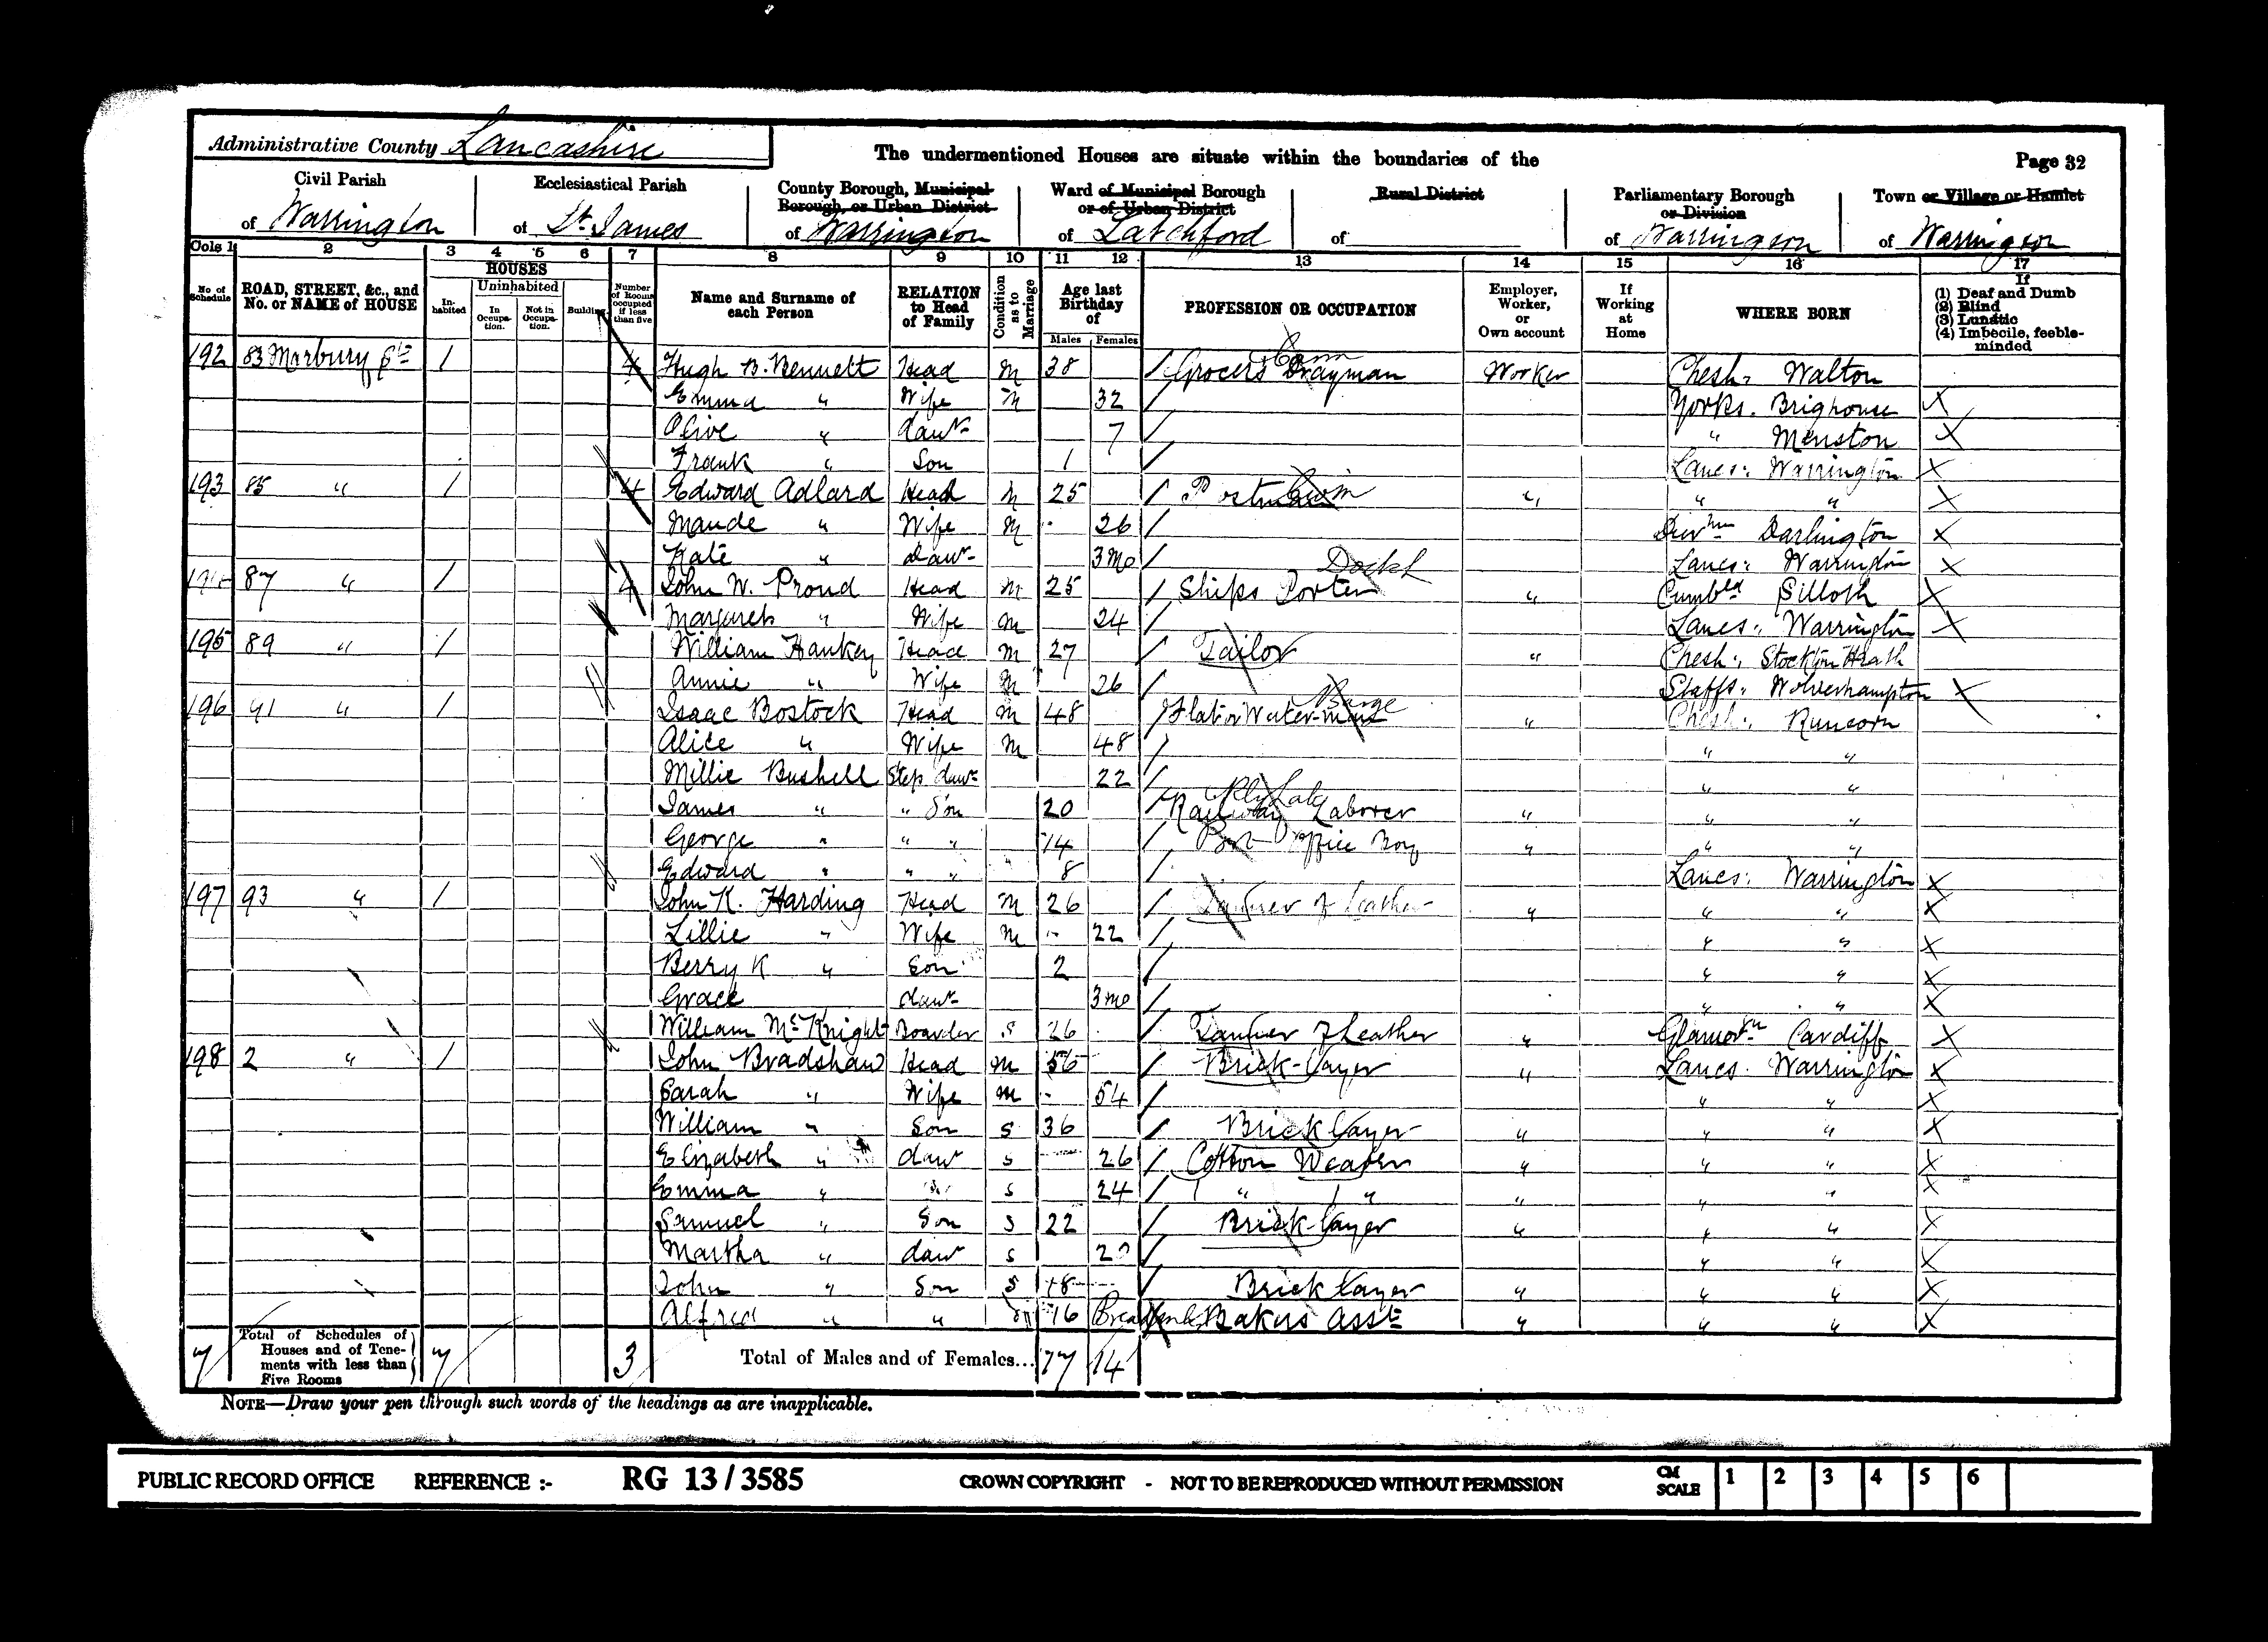 Administrative County Lancashire
The undermentioned Houses are situate within the boundaries of the
Page 32
Civil Parish of Warrington
Ecclesiastical Parish of St. James
County Borough, Municipal Borough, or Urban District of Warrington
Ward of Municipal Borough or of Urban District of Latchford
Rural District of
Parliamentary Borough or Division of Warrington
Town or Village or Hamlet of Warrington
Cols 1 2 3 4 5 6 7 8 9 10 11 12 13 14 15 16 17
No. of Schedule
ROAD, STREET, &c., and No. or NAME of HOUSE
HOUSES
Inhabited
Uninhabited
In Occupation.
Not in Occupation.
Building.
Number of Rooms occupied if less than five
Name and Surname of each Person
RELATION to Head of Family
Condition as to Marriage
Age last Birthday of
Males Females
PROFESSION OR OCCUPATION
Employer, Worker, or Own account
If Working at Home
WHERE BORN
If (1) Deaf and Dumb (2) Blind (3) Lunatic (4) Imbecile, feeble-minded
192 83 Marbury St 1 4 Hugh B. Bennett Head M 38 Grocers Drayman Worker Chesh: Walton
Emma " Wife M 32 Yorks. Brighouse X
Olive " daur 7 " Menston X
Frank " Son 1 Lancs: Warrington X
193 85 " 1 4 Edward Adlard Head M 25 Postman " " " X
Maude " Wife M 26 Durhm Darlington X
Kate " daur 3 mo Lancs: Warrington X
87 " 1 4 John W. Proud Head M 25 Ships Porter " Cumbld Silloth X
Margaret " Wife M 24 Lancs: Warrington X
195 89 " 1 William Hankey Head M 27 Tailor " Chesh: Stockton Heath
Annie " Wife M 26 Staffs: Wolverhampton X
196 91 " 1 Isaac Bostock Head M 48 Barge " Chesh: Runcorn
Alice " Wife M 48 " "
Millie Bushell Step daur 22 " "
James " " Son 20 Railway Laborer " " "
George " " " 14 Post Office Boy " " "
Edward " " " 8 Lancs: Warrington X
197 93 " 1 John K. Harding Head M 26 Tanner of Leather " " " X
Lillie " Wife M 22 " " X
Berry K " Son 2 " " X
Grace daur 3 mo " " X
William McKnight Boarder S 26 Tanner of Leather " Glamorgn Cardiff X
198 2 " 1 John Bradshaw Head M 56 Brick-layer " Lancs. Warrington X
Sarah " Wife M 54 " " X
William " Son S 36 Brick layer " " " X
Elizabeth " daur S 26 Cotton Weaver " " " X
Emma " " S 24 " " " " " X
Samuel " Son S 22 Brick-layer " " " X
Martha " daur S " " X
John " Son S 18 Brick layer " " " X
Alfred " " 16 Bakers Asst " " " X
7 Total of Schedules of Houses and of Tenements with less than Five Rooms 7 3 Total of Males and of Females... 17 14
NOTE—Draw your pen through such words of the headings as are inapplicable.
PUBLIC RECORD OFFICE REFERENCE :- RG 13 / 3585 CROWN COPYRIGHT - NOT TO BE REPRODUCED WITHOUT PERMISSION CM SCALE 1 2 3 4 5 6